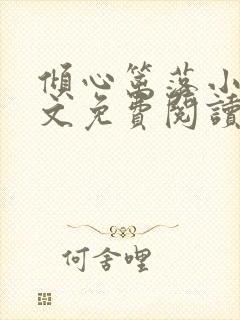 傾心篱落小
文免費閱讀
何舍哩